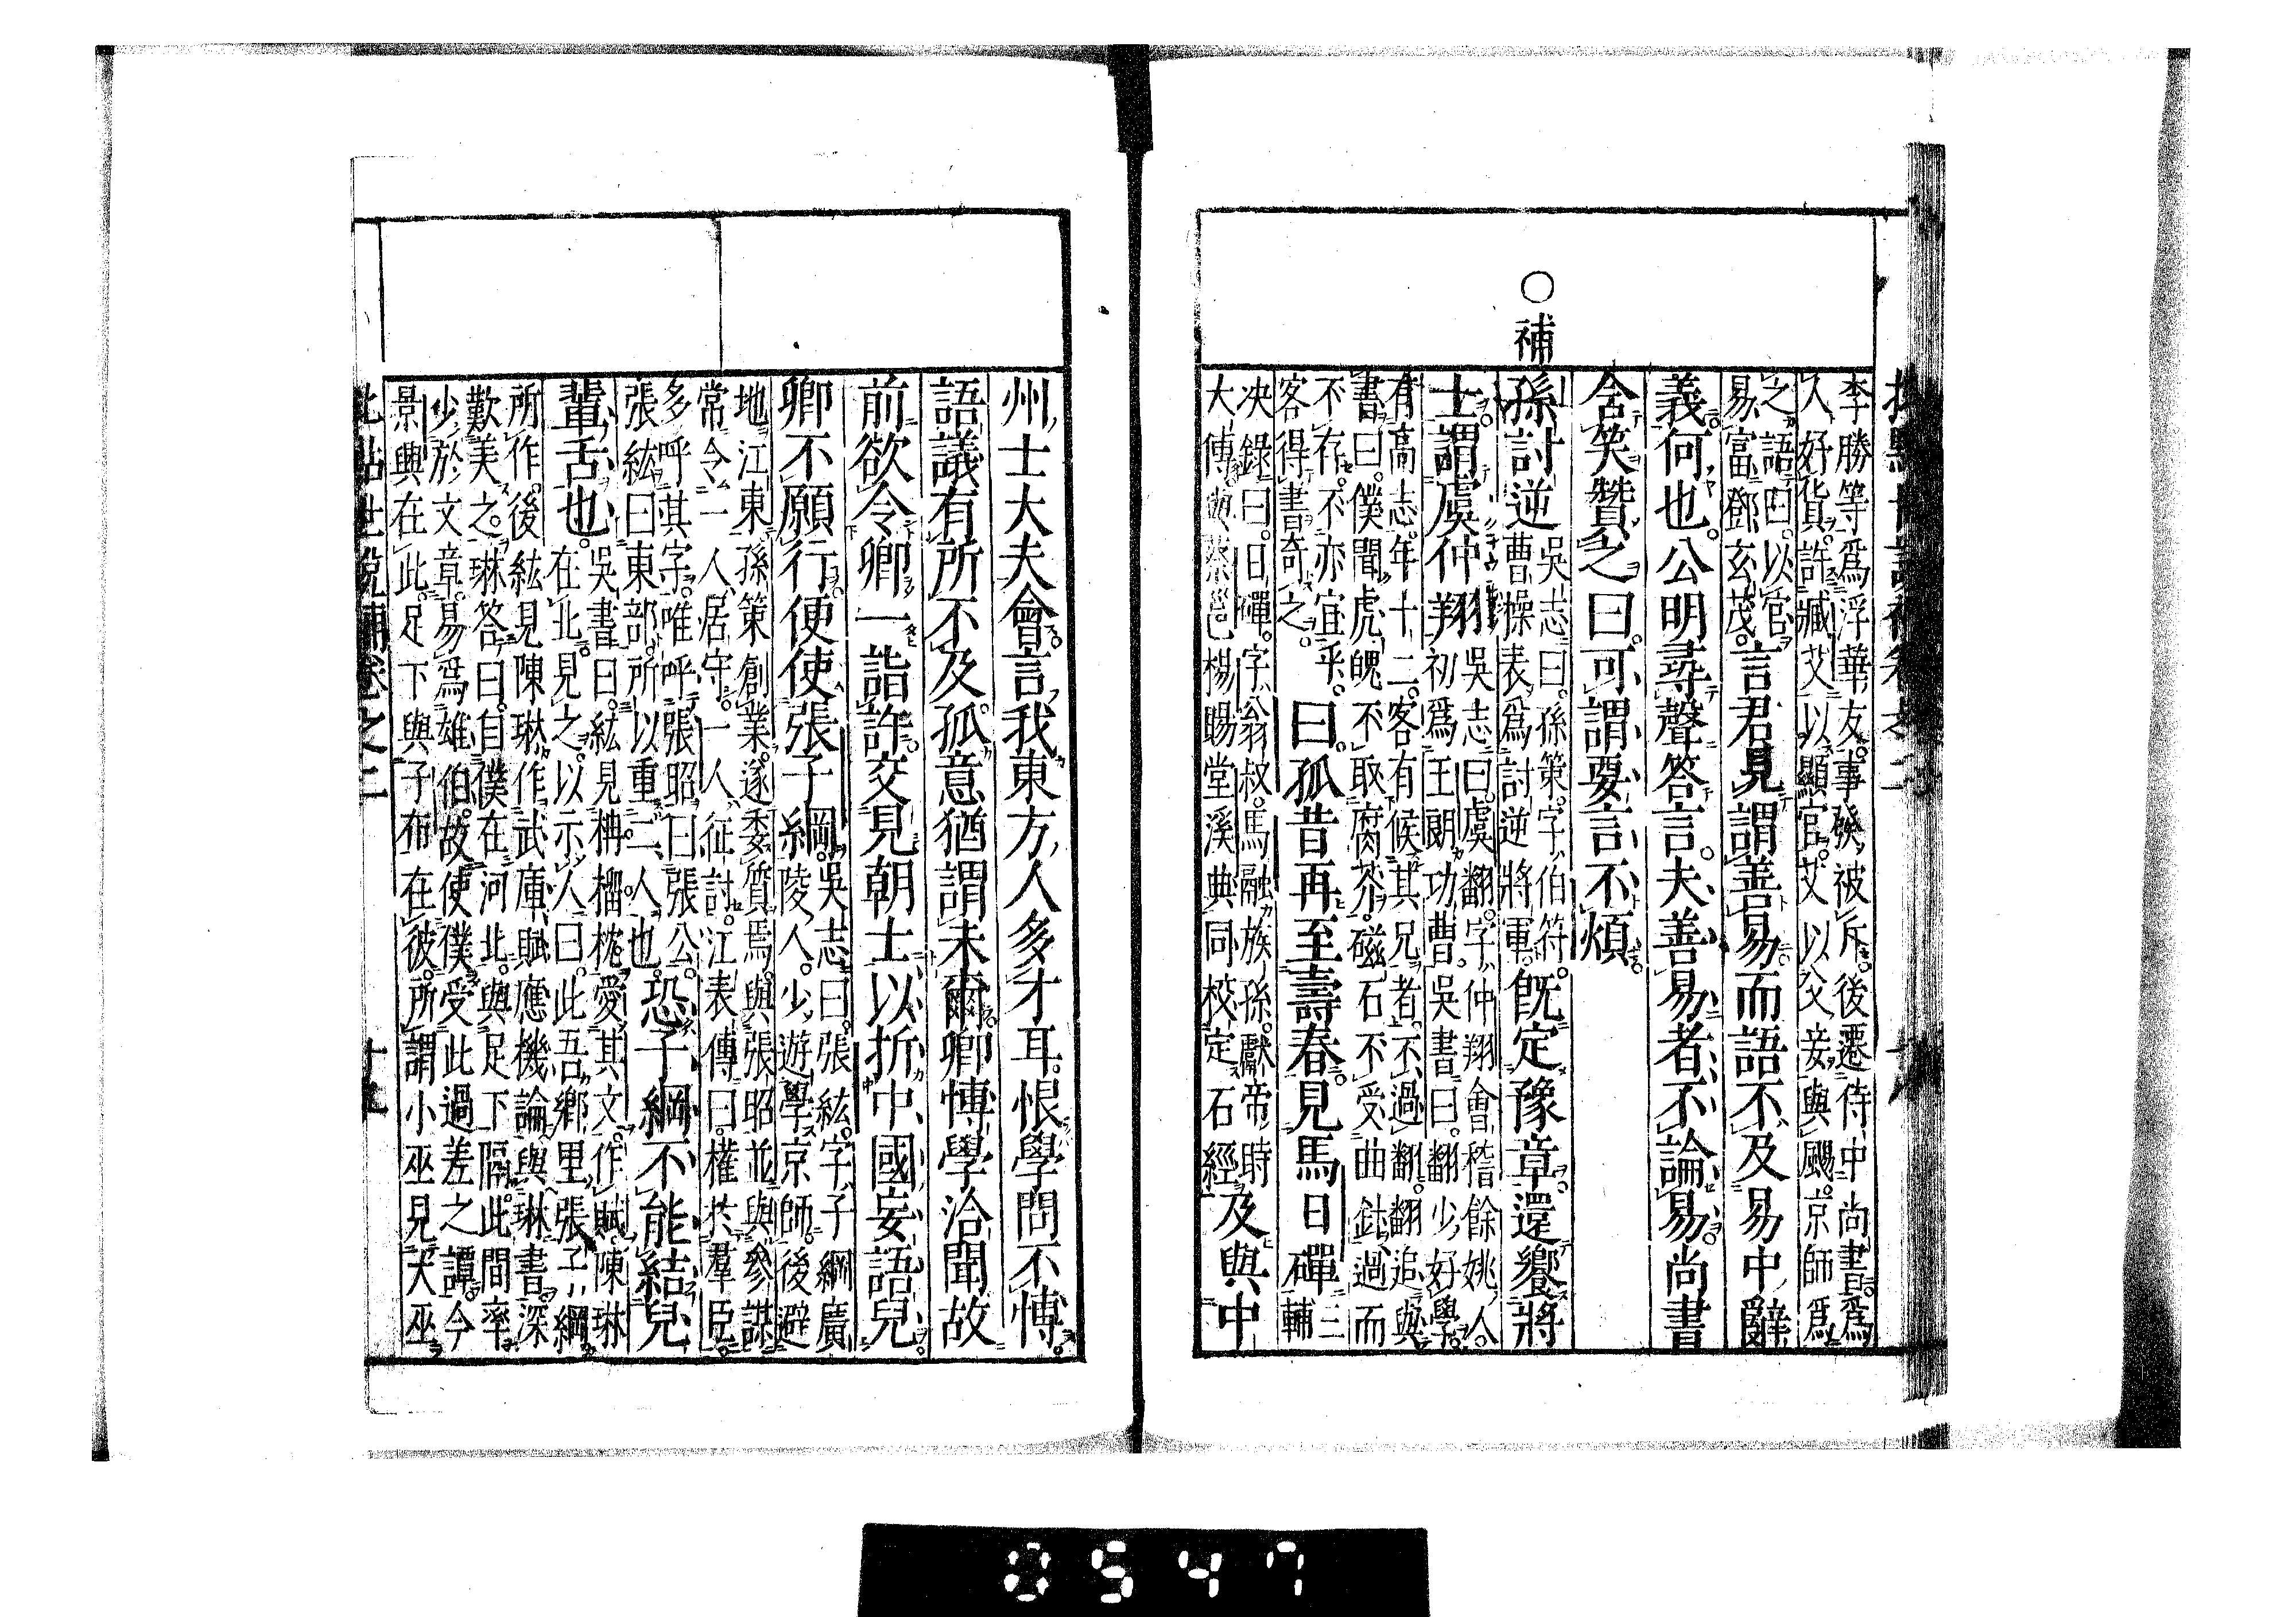 李勝等爲浮華友。事發被斥。後遷侍中尚書。爲
人好貨。許臧艾以顯官。艾以父妾與颺。京師爲
之語曰。以官
易富鄧玄茂。
言君見謂善易。而語不及易中辭
義何也。公明尋聲答言。夫善易者不論易。尚書
含笑贊之曰。可謂要言不煩。
○補
孫討逆
吳志曰。孫策。字伯符。
曹操表爲討逆將軍。
既定豫章。還饗將
士。謂虞仲翔
吳志曰。虞翻。字仲翔會稽餘姚人。
初爲王朗功曹。吳書曰。翻少好學。
有高志。年十二。客有候其兄者。不過翻。翻追與
書曰。僕聞虎魄不取腐芥。磁石不受曲鍼。過而
不存。不亦宜乎。
客得書奇之。
曰。孤昔再至壽春。見馬日磾
三
輔
决錄曰。日磾。字翁叔。馬融族孫。獻帝時
大傅。與蔡邕楊賜堂溪典同校定石經
及與中
州士大夫會。言我東方人多才耳。恨學問不博。
語議有所不及。孤意猶謂未爾。卿博學洽聞。故
前欲令卿一詣許。交見朝士。以折中國妄語兒。
卿不願行。便使張子綱。
吳志曰。張紘。字子綱廣
陵人。少遊學京師。後避
地江東。孫策創業。遂委質焉。與張昭並與參謀。
常令一人居守。一人征討。江表傳曰。權於羣臣。
多呼其字。唯呼張昭曰張公。
張紘曰東部。所以重二人也。
恐子綱不能結兒
輩舌也。
吳書曰。紘見柟榴枕。愛其文。作賦。陳琳
在北。見之。以示人曰。此吾鄉里張子綱
所作。後紘見陳琳作武庫賦應機論。與琳書。深
歎美之。琳答曰。自僕在河北。與足下隔。此間率
少於文章。易爲雄伯。故使僕受此過差之譚。今
景興在此。足下與子布在彼。所謂小巫見大巫